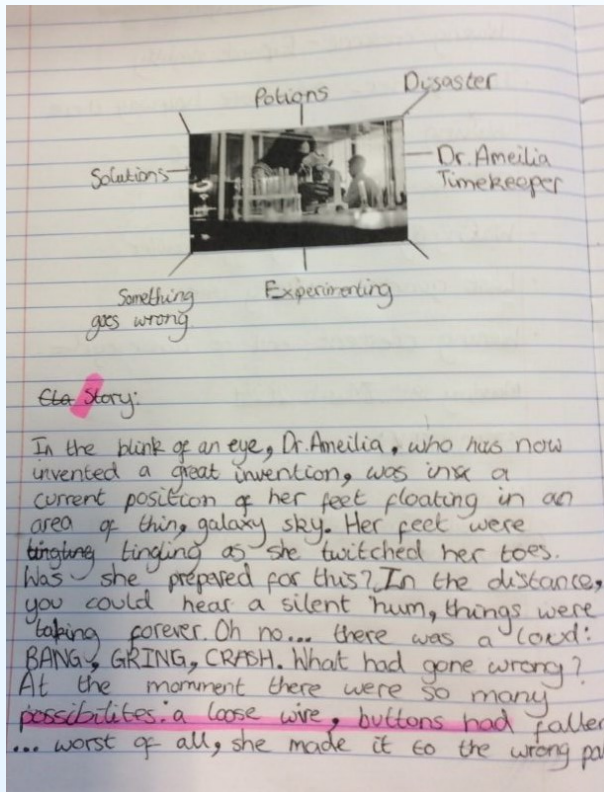 Potions
Disaster
Solutions
Dr. Ameilia
Timekeeper
Something
goes wrong
Experimenting
Story:
In the blink of an eye, Dr. Ameilia, who has now
invented a great invention, was in a
current position of her feet floating in an
area of thin, galaxy sky. Her feet were
tingling as she twitched her toes.
Was she prepared for this? In the distance,
you could hear a silent hum, things were
taking forever. Oh no... there was a loud:
BANG, GRING, CRASH. What had gone wrong?
At the momment there were so many
possibilites: a loose wire, buttons had fallen
... worst of all, she made it to the wrong